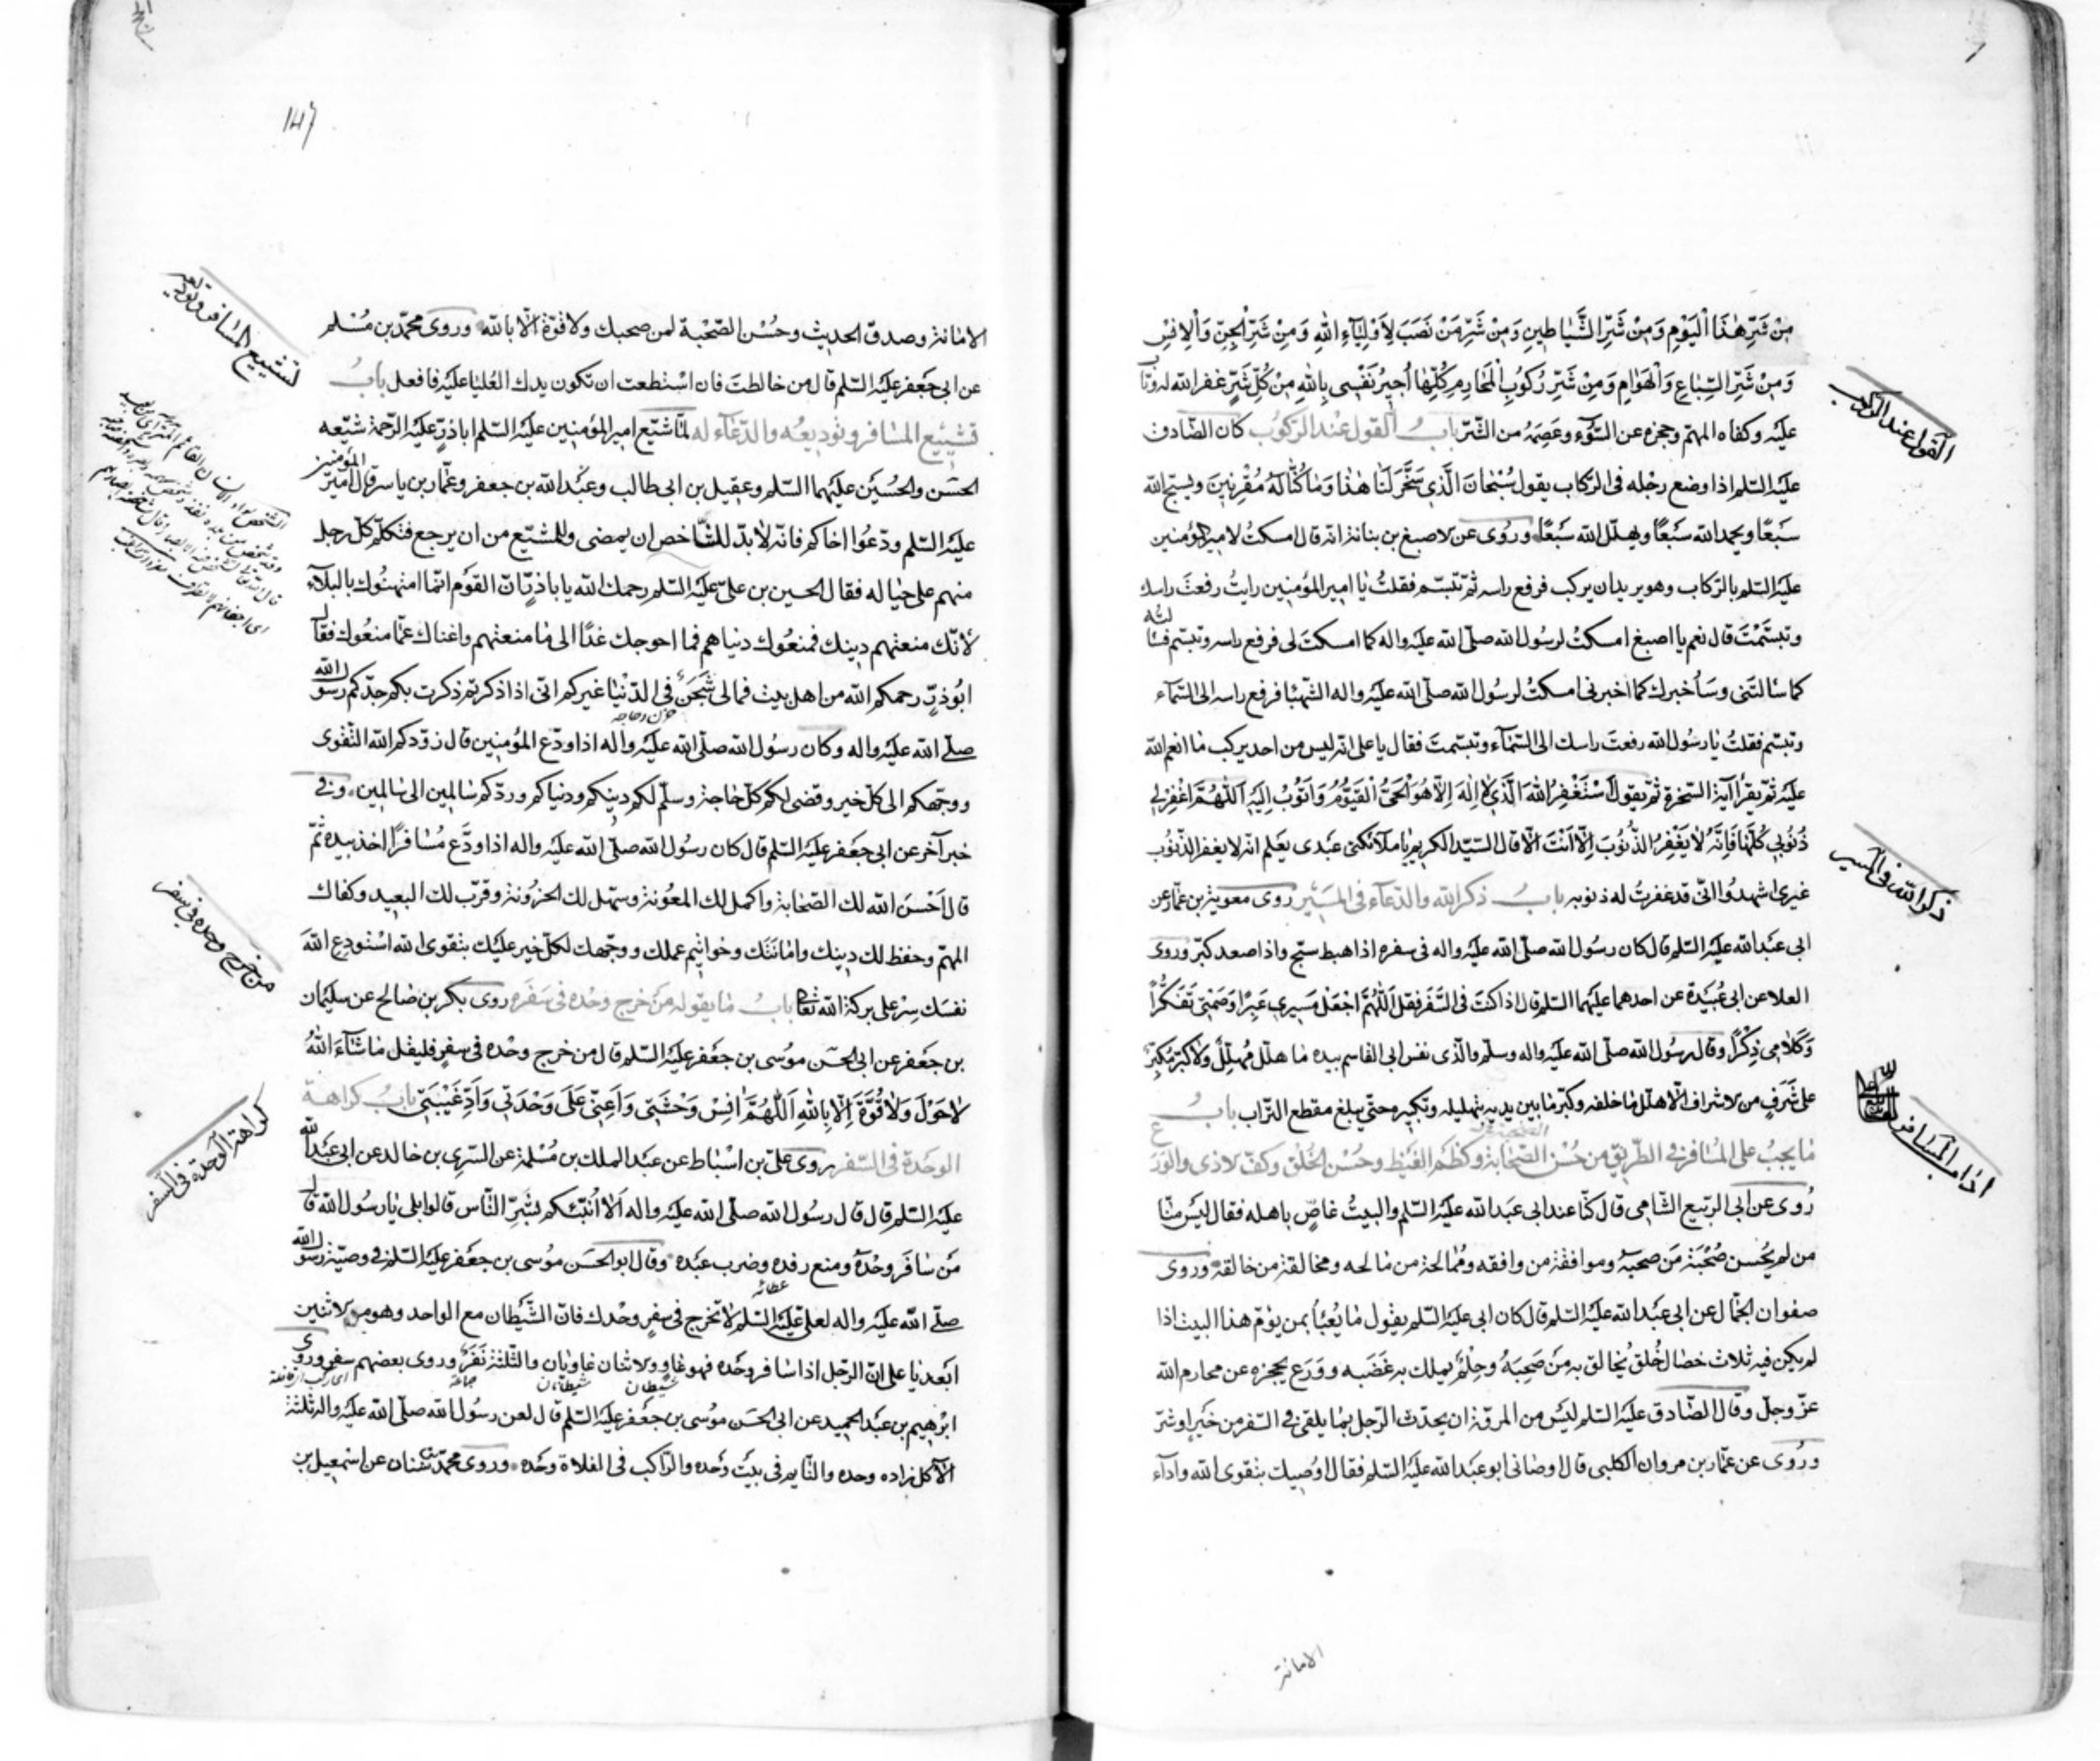 مِنْ شَرِّ هٰذَا الْيَوْمِ وَمِنْ شَرِّ الشَّيَاطينِ وَمِنْ شَرِّ مَنْ نَصَبَ لِاَوْلِيَآءِ اللّٰهِ وَمِنْ شَرِّ الْجِنِّ وَالْاِنْسِ
وَمِنْ شَرِّ السِّبَاعِ وَالْهَوَامِ وَمِنْ شَرِّ رُكُوبِ الْمَحَارِمِ كُلِّهَا اُجِيرُ نَفْسِى بِاللّٰهِ مِنْ كُلِّ شَرٍّ غفر الله له وتاب
عليه وكفاه المهمّ وحجزه عن السّوٓء وعصمه من الشّرّ بابُ القول عند الركُوب كان الصّادق
عليه السّلم اذا وضع رجله فى الرّكاب يقول سُبْحَانَ الَّذى سَخَّرَ لَنَا هٰذَا وَمَا كُنَّا لَهُ مُقْرِنينَ ويسبّح الله
سبعًا ويحمد الله سَبْعًا ويهلّل الله سَبْعًا وروى عن الاصبغ بن نباتة انه قال امسكتُ لامير المؤمنين
عليه السّلم بالرّكاب وهو يريد ان يركب فرفع راسه ثم تبسّم فقلتُ يا امير المؤمنين رايتُك رفعتَ راسك
وتبسّمْتَ قال نعم يا اصبغ امسكتُ لرسُول الله صلّى الله عليه واله كما امسكتَ لى فرفع راسه وتبسّم فسالته
كما سالتنى وسَأخبرك كما اخبرنى امسكتُ لرسُول الله صلّى الله عليه واله الشّهبا فرفع راسه الى السّمآء
وتبسّم فقلتُ يا رسُول الله رفعتَ راسك الى السّمآء وتبسّمت فقال يا على انه ليس من احد يركب ما انعم الله
عليه ثم يقرأ آية السّخرة ثم يقول اَسْتَغْفِرُ اللّٰهَ الَّذى لَا اِلٰهَ اِلّا هُوَ الْحَىُّ الْقَيّوُمُ وَاَتُوبُ اِلَيْهِ اَللّٰهُمَّ اغْفِرْ لى
ذُنُوبى كُلَّهَا فَاِنَّهُ لَا يَغْفِرُ الذُّنُوبَ اِلّا اَنْتَ الّا قال السّيّد الكريم يا ملآئكتى عَبْدى يعلم انه لا يغفر الذّنوُب
غيرى اشهدُوا انّى قد غفرتُ له ذنوبه بابُ ذكر الله والدّعآء فى المَسيْر روى معوية بن عمّار عن
ابى عبد الله عليه السّلم قال كان رسُول الله صلّى الله عليه واله فى سفره اذا هبط سبّح واذا صعد كبّر وروى
العلا عن ابى عُبيْدة عن احدهما عليهما السّلم قال اذا كنت فى السّفر فقل اَللّٰهُمَّ اجْعَلْ مَسيرى عَبِرًا وَصَمْتى تَفَكُّرًا
وَكَلَامى ذِكْرًا وقال رسُول الله صلّى الله عليه واله وسلّم والّذى نفس ابى القاسم بيده ما هلّل مُهلِّل ولا كبّر مُكبِّر
على شَرَفٍ من الاشراف الّا هلّل ما خلفه وكبّر ما بين يديه بتهليله وتكبيره حتّى يبلغ مقطع التّراب بابُ
مَا يجبُ على المُسافر فى الطّريق من حُسْن الصّحَابة وكظم الغيظ وحُسْن الخُلق وكفّ الاذى والورع
رُوى عن ابى الرّبيع الشّامى قال كنّا عند ابى عبد الله عليه السّلم والبيتُ غاصٌّ باهله فقال ليْسَ منّا
من لم يُحسن صُحْبَة مَن صحبَهُ وموافقة من وافقه ومُمَالحة من مالحه ومخالقة من خالقه وروى
صفوان الجمّال عن ابى عبد الله عليه السّلم قال كان ابى عليه السّلم يقول ما يُعْبأ بمن يؤمّ هذا البيت اذا
لم يكن فيه ثلاث خصال خُلُق يُخالق به مَن صَحِبَهُ وحِلْمٌ يملك به غَضَبه ووَرَع يحجزه عن محارم الله
عزّ وجلّ وقال الصّادق عليه السّلم ليْسَ من المروّة ان يحدّث الرّجل بما يلقى فى السّفر من خَيرٍ او شرّ
ورُوى عن عمّار بن مروان الكلبى قال اوصانى ابو عبد الله عليه السّلم فقال اوُصيك بتقوى الله وادآء
القول عند الركوب
ذكر الله فى المسير
اداب المسافر
الامانة
147
الامانة وصدق الحديث وحُسْن الصّحْبة لمن صحبك ولا قوّة الّا بالله وروى محمّد بن مُسْلم
عن ابى جَعفر عليه السّلم قال من خالطتَ فان اسْتطعت ان تكون يدك العُليا عليه فافعل بابُ
تشييع المسافر وتوديعُه والدّعآء له لمّا شيّع امير المؤمنين عليه السّلم اباذرّ عليه الرّحمة شيّعه
الحَسَن والحُسيْن عليهما السّلم وعقيل بن ابى طالب وعَبْد الله بن جعفر وعمّار بن ياسر قال امير المؤمنين
عليه السّلم ودّعُوا اخاكم فانّه لا بدّ للشّاخص ان يمضى وللمشيّع من ان يرجع فتكلّم كلّ رجل
منهم على حياله فقال الحسين بن علىّ عليه السّلم رحمك الله يا اباذرّ انّ القَوْم انّما امتهنُوك بالبلآء
لأنّك منعتهم دينك فمنعُوك دنياهم فما احوجك غدًا الى ما منعتهم واغناك عمّا منعُوك فقال
ابُو ذرّ رحمكم الله من اهل بيت فمالى شَجَنٌ فى الدّنْيا غيركم انّى اذا ذكرتم ذكرت بكم جدّكم رسُول الله
حزن وحاجه
صلّى الله عليه واله وكان رسُول الله صلّى الله عليه واله اذا ودّع المؤمنين قال زوّدكم الله التّقوى
ووجّهكم الى كلّ خير وقضى لكم كلّ حاجة وسلّم لكم دينكم ودنياكم وردّكم سالمين الى سالمين وفى
خبر آخر عن ابى جعفر عليه السّلم قال كان رسُول الله صلّى الله عليه واله اذا ودَّع مُسافرًا اخذ بيده ثمّ
قال اَحْسَنَ الله لك الصّحَابة واكمل لك المعُونة وسهّل لك الحزُونة وقرّب لك البعيد وكفاك
المهمّ وحفظ لك دينك وامانتَك وخواتيم عملك ووجّهك لكلّ خير عليْك بتقوى الله اسْتودِع اللهَ
نفسَك سِرْ على بركة الله تعا بابُ ما يقوله مَنْ خرج وحْده فى سَفَره روى بكر بن صالح عن سليمان
بن جعفر عن ابى الحسَن مُوسى بن جعفر عليه السّلم قال من خرج وحْده فى سفرٍ فليقل مَا شَآءَ اللّٰهُ
لَا حَوْلَ وَلَا قُوَّةَ اِلّا بِاللّٰهِ اَللّٰهُمَّ انِسْ وَحْشَتى وَاَعِنّى عَلَى وَحْدَتى وَاَدِّ غَيْبَتى بابُ كراهة
الوحْدة فى السّفر روى علىّ بن اسْباط عن عبْد الملك بن مُسْلمة عن السّرى بن خالد عن ابى عبْد الله
عليه السّلم قال قال رسُول الله صلّى الله عليه واله اَلَا اُنَبّئكم بشَرّ النّاس قالوا بلى يا رسُول الله قال
مَن سَافَر وَحْدَهُ ومنع رفده وضرب عبْده وقال ابو الحَسَن مُوسى بن جعفر عليه السّلم فى وصيّة رسُول الله
عطائه
صلّى الله عليه واله لعلى عليه السّلم لا تخرج فى سفرٍ وحْدك فانّ الشّيطان مع الواحد وهو من الاثنين
ابَعد يا على انّ الرّجل اذا سافر وحْده فهو غاوٍ والاثنان غاويان والثّلثة نَفَرٌ وروى بعضهم سفر وروى
شيطان شيطانان جماعة
ابْرٰهيم بن عبْد الحميد عن ابى الحسَن مُوسى بن جعفر عليه السّلم قال لعن رسُول الله صلّى الله عليه واله ثلثة
الآكل زاده وحده والنّايم فى بيْت وحْده والرّاكب فى الفلاة وحْده وروى محمّد بن سنان عن اسْمعيل بن
تشييع المسافر وتوديعه
من خرج وحده فى سفر
كراهة الوحدة فى السفر